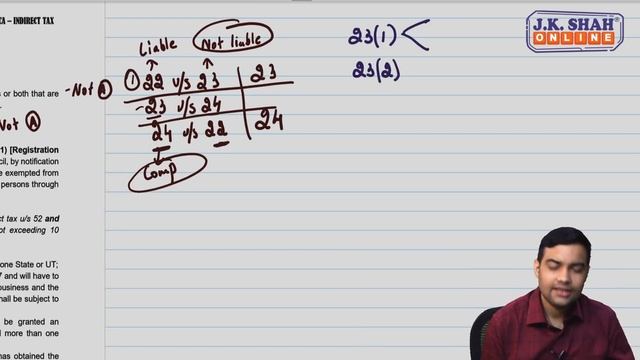 TA – INDIRECT TAX
J.K. SHAH
ONLINE
Liable Not liable
- Not A ① 22 v/s 23 23
- 23 v/s 24
24 v/s 22 24
Comp
23(1) <
23(2)
s or both that are
Not A
1) [Registration
cil, by notification
e exempted from
persons through
ct tax u/s 52 and
ot exceeding 10
one State or UT;
7 and will have to
business and the
hall be subject to
be granted an
d more than one
has obtained the